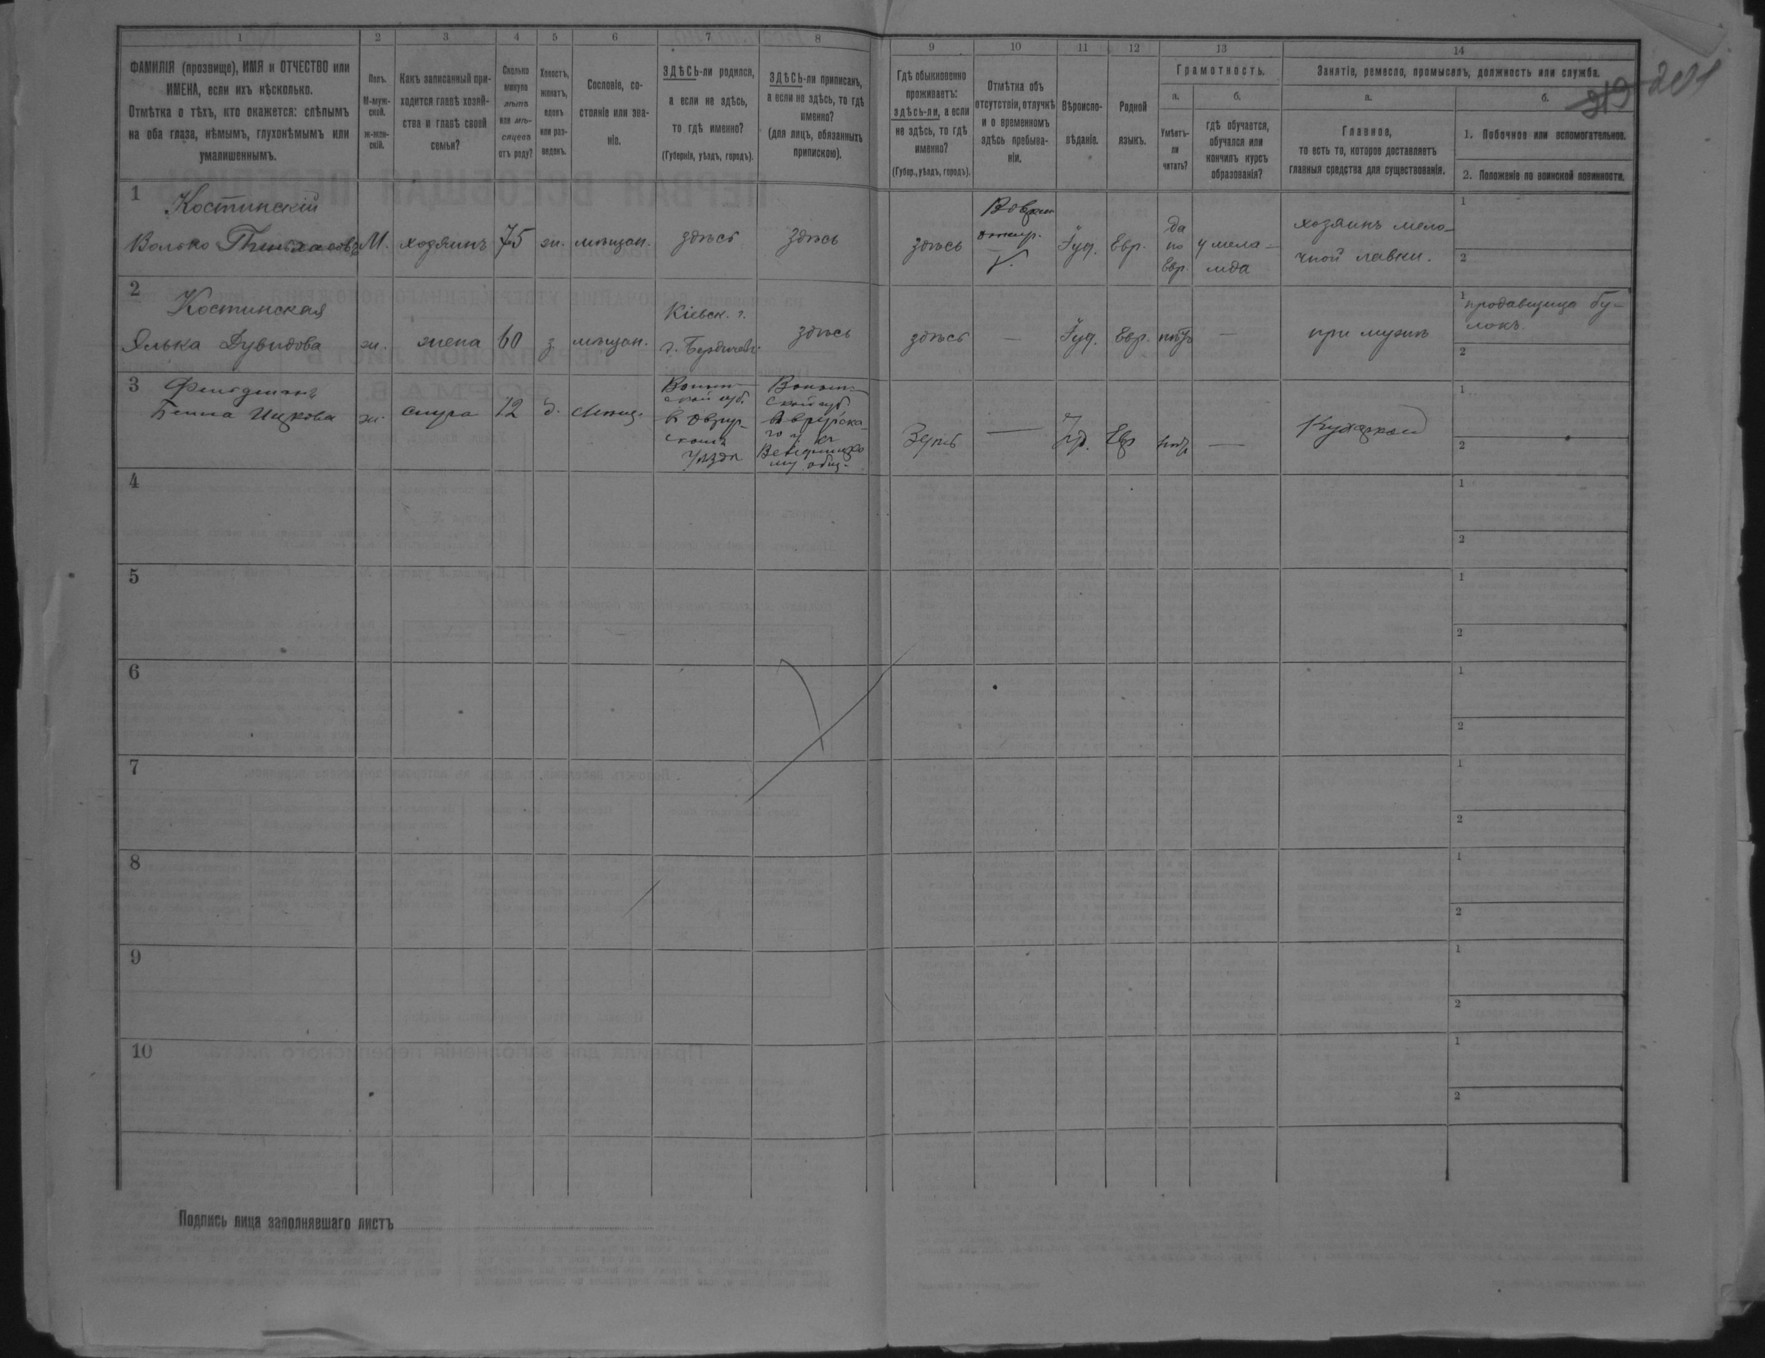 1
2
3
4
5
6
7
8
9
10
11
12
13
14
ФАМИЛІЯ (прозвище), ИМЯ и ОТЧЕСТВО или
ИМЕНА, если ихъ нѣсколько.
Отмѣтка о тѣхъ, кто окажется: слѣпымъ
на оба глаза, нѣмымъ, глухонѣмымъ или
умалишеннымъ.
Полъ.
М-муж-
ской.
ж-жен-
скій.
Какъ записанный при-
ходится главѣ хозяй-
ства и главѣ своей
семьи?
Сколько
минуло
лѣтъ
или мѣ-
сяцевъ
отъ роду?
Холостъ,
женатъ,
вдовъ
или раз-
веденъ.
Сословіе, со-
стояніе или зва-
ніе.
ЗДѢСЬ-ли родился,
а если не здѣсь,
то гдѣ именно?
(Губернія, уѣздъ, городъ).
ЗДѢСЬ-ли приписанъ,
а если не здѣсь, то гдѣ
именно?
(для лицъ, обязанныхъ
припискою).
Гдѣ обыкновенно
проживаетъ:
здѣсь-ли, а если
не здѣсь, то гдѣ
именно?
(Губер., уѣздъ, городъ).
Отмѣтка объ
отсутствіи, отлучкѣ
и о временномъ
здѣсь пребыва-
ніи.
Вѣроиспо-
вѣданіе.
Родной
языкъ.
Грамотность.
а.
Умѣетъ-
ли
читать?
б.
гдѣ обучается,
обучался или
кончилъ курсъ
образованія?
Занятіе, ремесло, промыселъ, должность или служба.
а.
Главное,
то есть то, которое доставляетъ
главныя средства для существованія.
б.
1. Побочное или вспомогательное.
2. Положеніе по воинской повинности.
1
Костинскій
Волько М. хозяинъ 75 ж. мѣщан. здѣсь здѣсь здѣсь Іуд. Евр.
да
по
Евр.
у мела-
мда
хозяинъ мело-
чной лавки.
1
2
2
Костинская
Дувидова ж. жена 60 з. мѣщан.
Кіевск. г.
г. Бердичевъ
здѣсь здѣсь — Іуд. Евр. нѣтъ — при мужѣ
1 продавщица бу-
локъ.
2
3
Ицкова ж. слуга 12 д.
Волын-
ской губ.
уѣздѣ
Волын-
ской губ.
— Евр нѣтъ — Кухаркой
1
2
4
1
2
5
1
2
6
1
2
7
1
2
8
1
2
9
1
2
10
1
2
Подпись лица заполнявшаго листъ